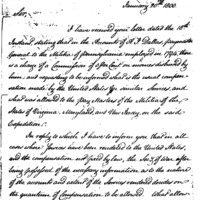 January 30th 1800.
Sir,
I have received your letter dated the 18th
Instant stating that in the Accounts of A J Dallas, paymaster
General to the Militia of pennsylvania employed in 1794, there
is a charge of a Commission of  Cent on monies disbursed by
him, and requesting to be informed what is the usual compen-
sation made by the United States for similar Services and
what was allowed to the Pay Masters of the Militia of the
States of Virginia, Maryland, and New Jersey, on the said
Expedition.
In reply to which I have to inform you that in all
cases where Services have been rendered to the United States,
and the compensation not fixed by law, the of War after
being possessed of the necessary information as to the nature
of the accounts and extent of the Services rendered decides on
the quantum of Compensation to be allowed. What allow